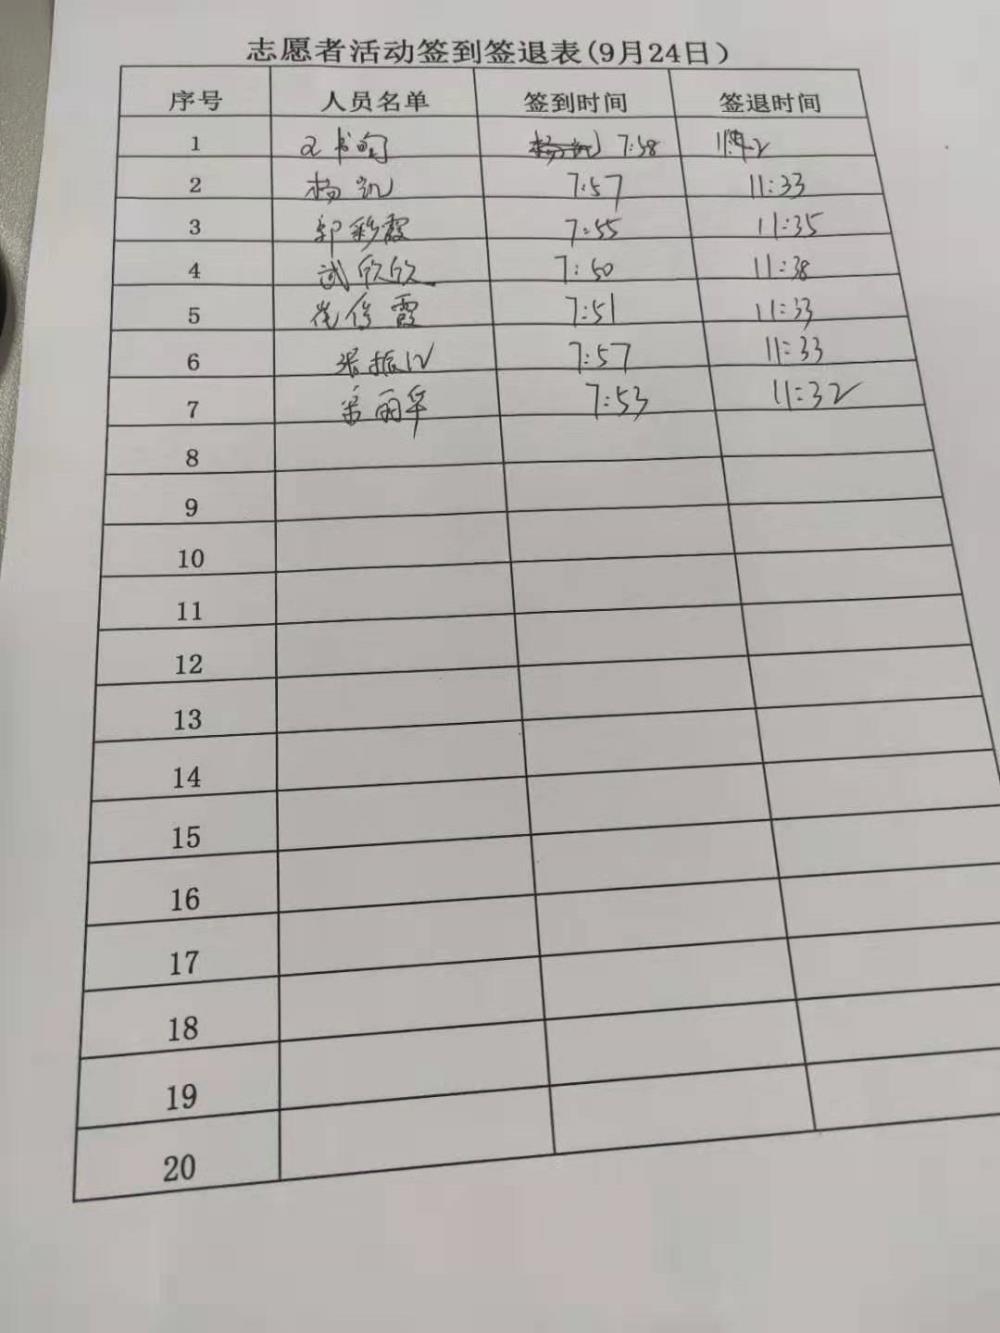 志愿者活动签到签退表(9月24日)
序号 人员名单 签到时间 签退时间
1 7:58
2 杨凯 7:57 11:33
3 郭彩霞 7:55 11:35
4 武欣欣 7:50 11:38
5 崔俊霞 7:51 11:33
6 7:57 11:33
7 7:53 11:32
8
9
10
11
12
13
14
15
16
17
18
19
20